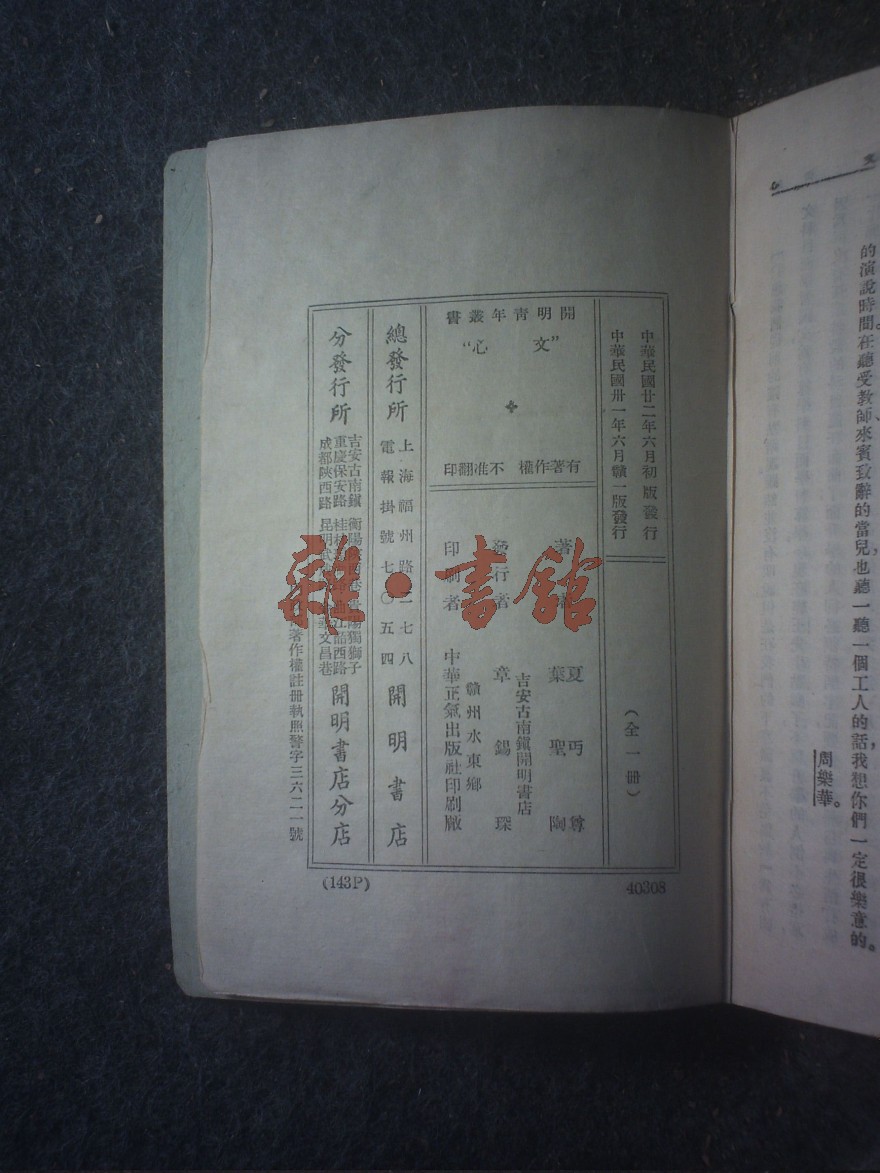 的演說時間。在聽受教師來賓致辭的當兒,也聽一聽一個工人的話,我想你們一定很樂意的。
周樂華。
中華民國廿二年六月初版發行
中華民國卅一年六月贛一版發行
(全一冊)
開明青年叢書
“文心”
有著作權 不准翻印
著者 夏丏尊
葉聖陶
發行者 章錫琛
吉安古南鎮開明書店
印刷者 中華正氣出版社印刷廠
贛州水東鄉
總發行所 上海福州路二七八 開明書店
電報掛號七〇五四
分發行所 開明書店分店
吉安古南鎮
重慶保安路
成都陝西路
著作權註冊執照警字三六二一號
40308
(143P)
雜·書館